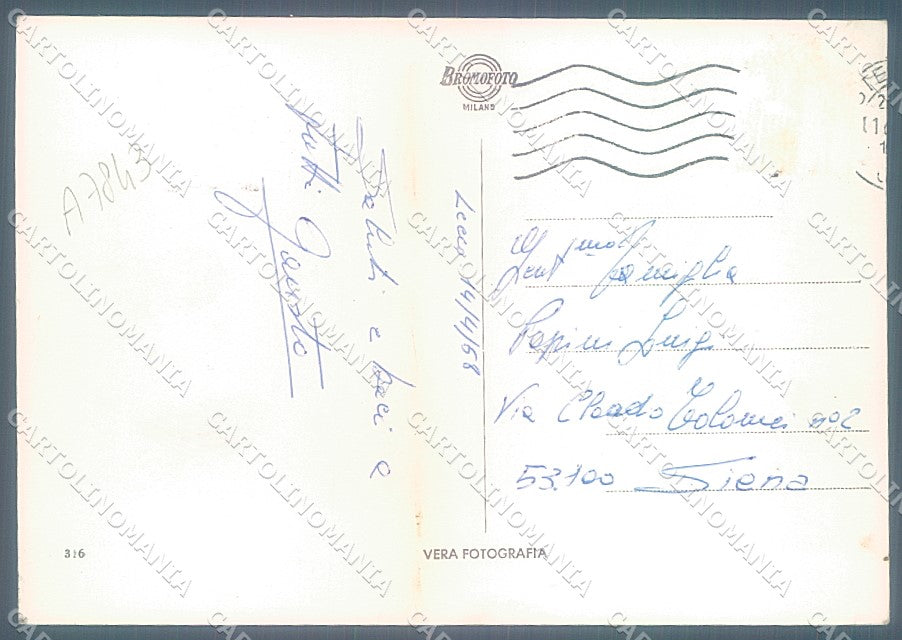 BROMOFOTO
MILANO
A7843
Saluti e baci a
tutti
Lecce 14/4/68
Gent.ma Famiglia
Papini Luigi
Via Claudio Tolomei n° 2
53100 Siena
316
VERA FOTOGRAFIA
CARTOLINOMANIA